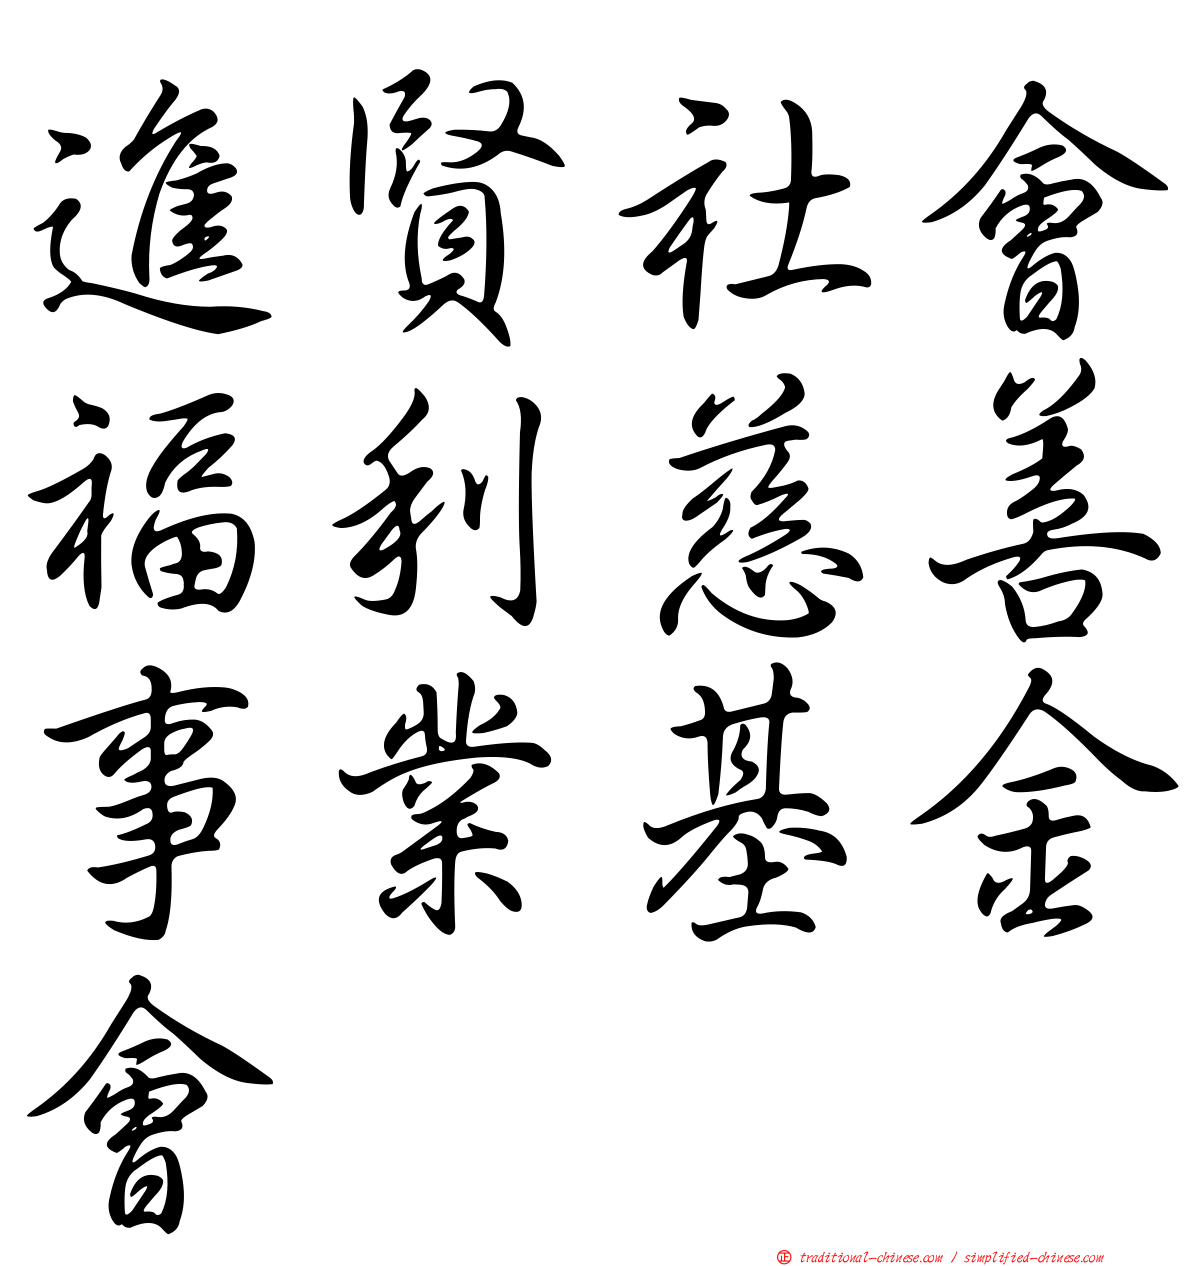 進賢社會
福利慈善
事業基金
會
正 traditional-chinese.com / simplified-chinese.com